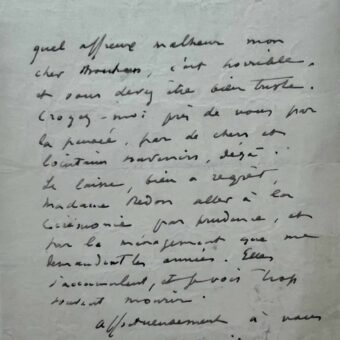 quel affreux malheur mon
cher Bonheur, c'est horrible,
et vous devez être bien triste.
Croyez-moi près de vous par
la pensée, par de chers et
lointains souvenirs, déjà.
Je laisse, bien à regret,
Madame Redon aller à la
Cérémonie par prudence, et
par le ménagement que me
demandent les années. Elles
s'accumulent, et je vois trop
souvent mourir.
Affectueusement à vous